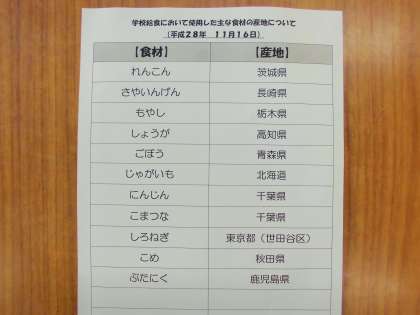 学校給食において使用した主な食材の産地について
（平成２８年　１１月１６日）
【食材】　【産地】
れんこん　茨城県
さやいんげん　長崎県
もやし　栃木県
しょうが　高知県
ごぼう　青森県
じゃがいも　北海道
にんじん　千葉県
こまつな　千葉県
しろねぎ　東京都（世田谷区）
こめ　秋田県
ぶたにく　鹿児島県